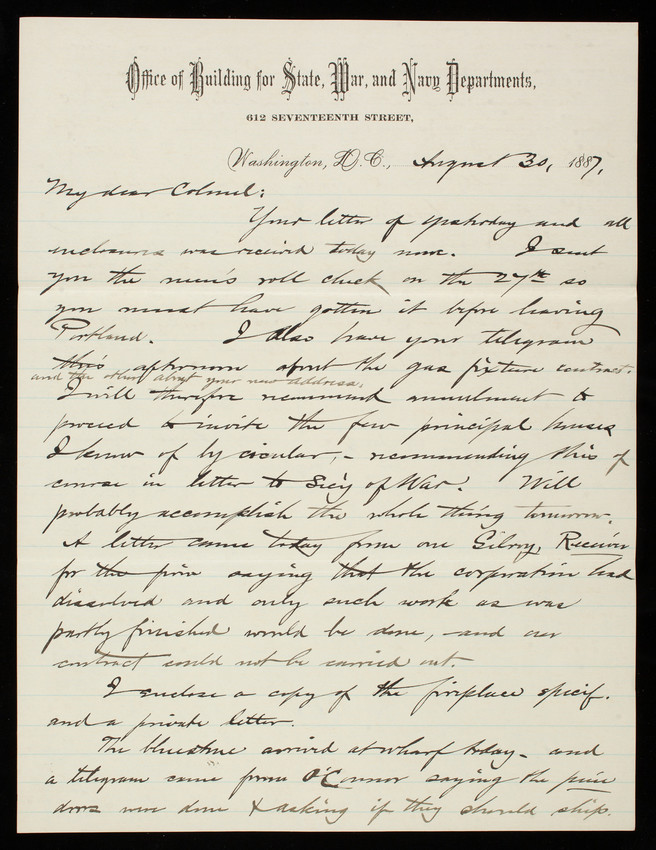 Office of Building for State, War, and Navy Departments,
612 SEVENTEENTH STREET,
Washington, D.C., August 30, 1887,
My dear Colonel:
Your letter of yesterday and all
inclosures was received today noon. I sent
you the men's roll check on the 27th so
you must have gotten it before leaving
Portland. I also have your telegram
this afternoon about the gas fixture contract.
and the other about your new address.
I will therefore recommend annulment &
proceed to invite the few principal houses
I know of by circular, - recommending this of
course in letter to Sec'y of War. Will
probably accomplish the whole thing tomorrow.
A letter came today from one Gilroy, Receiver
for the firm saying that the corporation had
dissolved and only such work as was
partly finished would be done, and our
contract could not be carried out.
I enclose a copy of the fireplace specif.
and a private letter.
The bluestone arrived at wharf today - and
a telegram came from O'Connor saying the pine
doors were done & asking if they should ship.